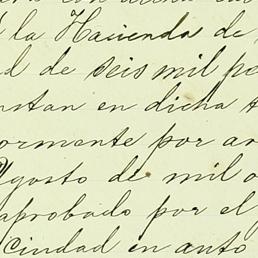 la Hacienda de
d de seis mil pe
nstan en dicha t
ormente por ar
Agosto de mil o
aprobado por el
ciudad en auto